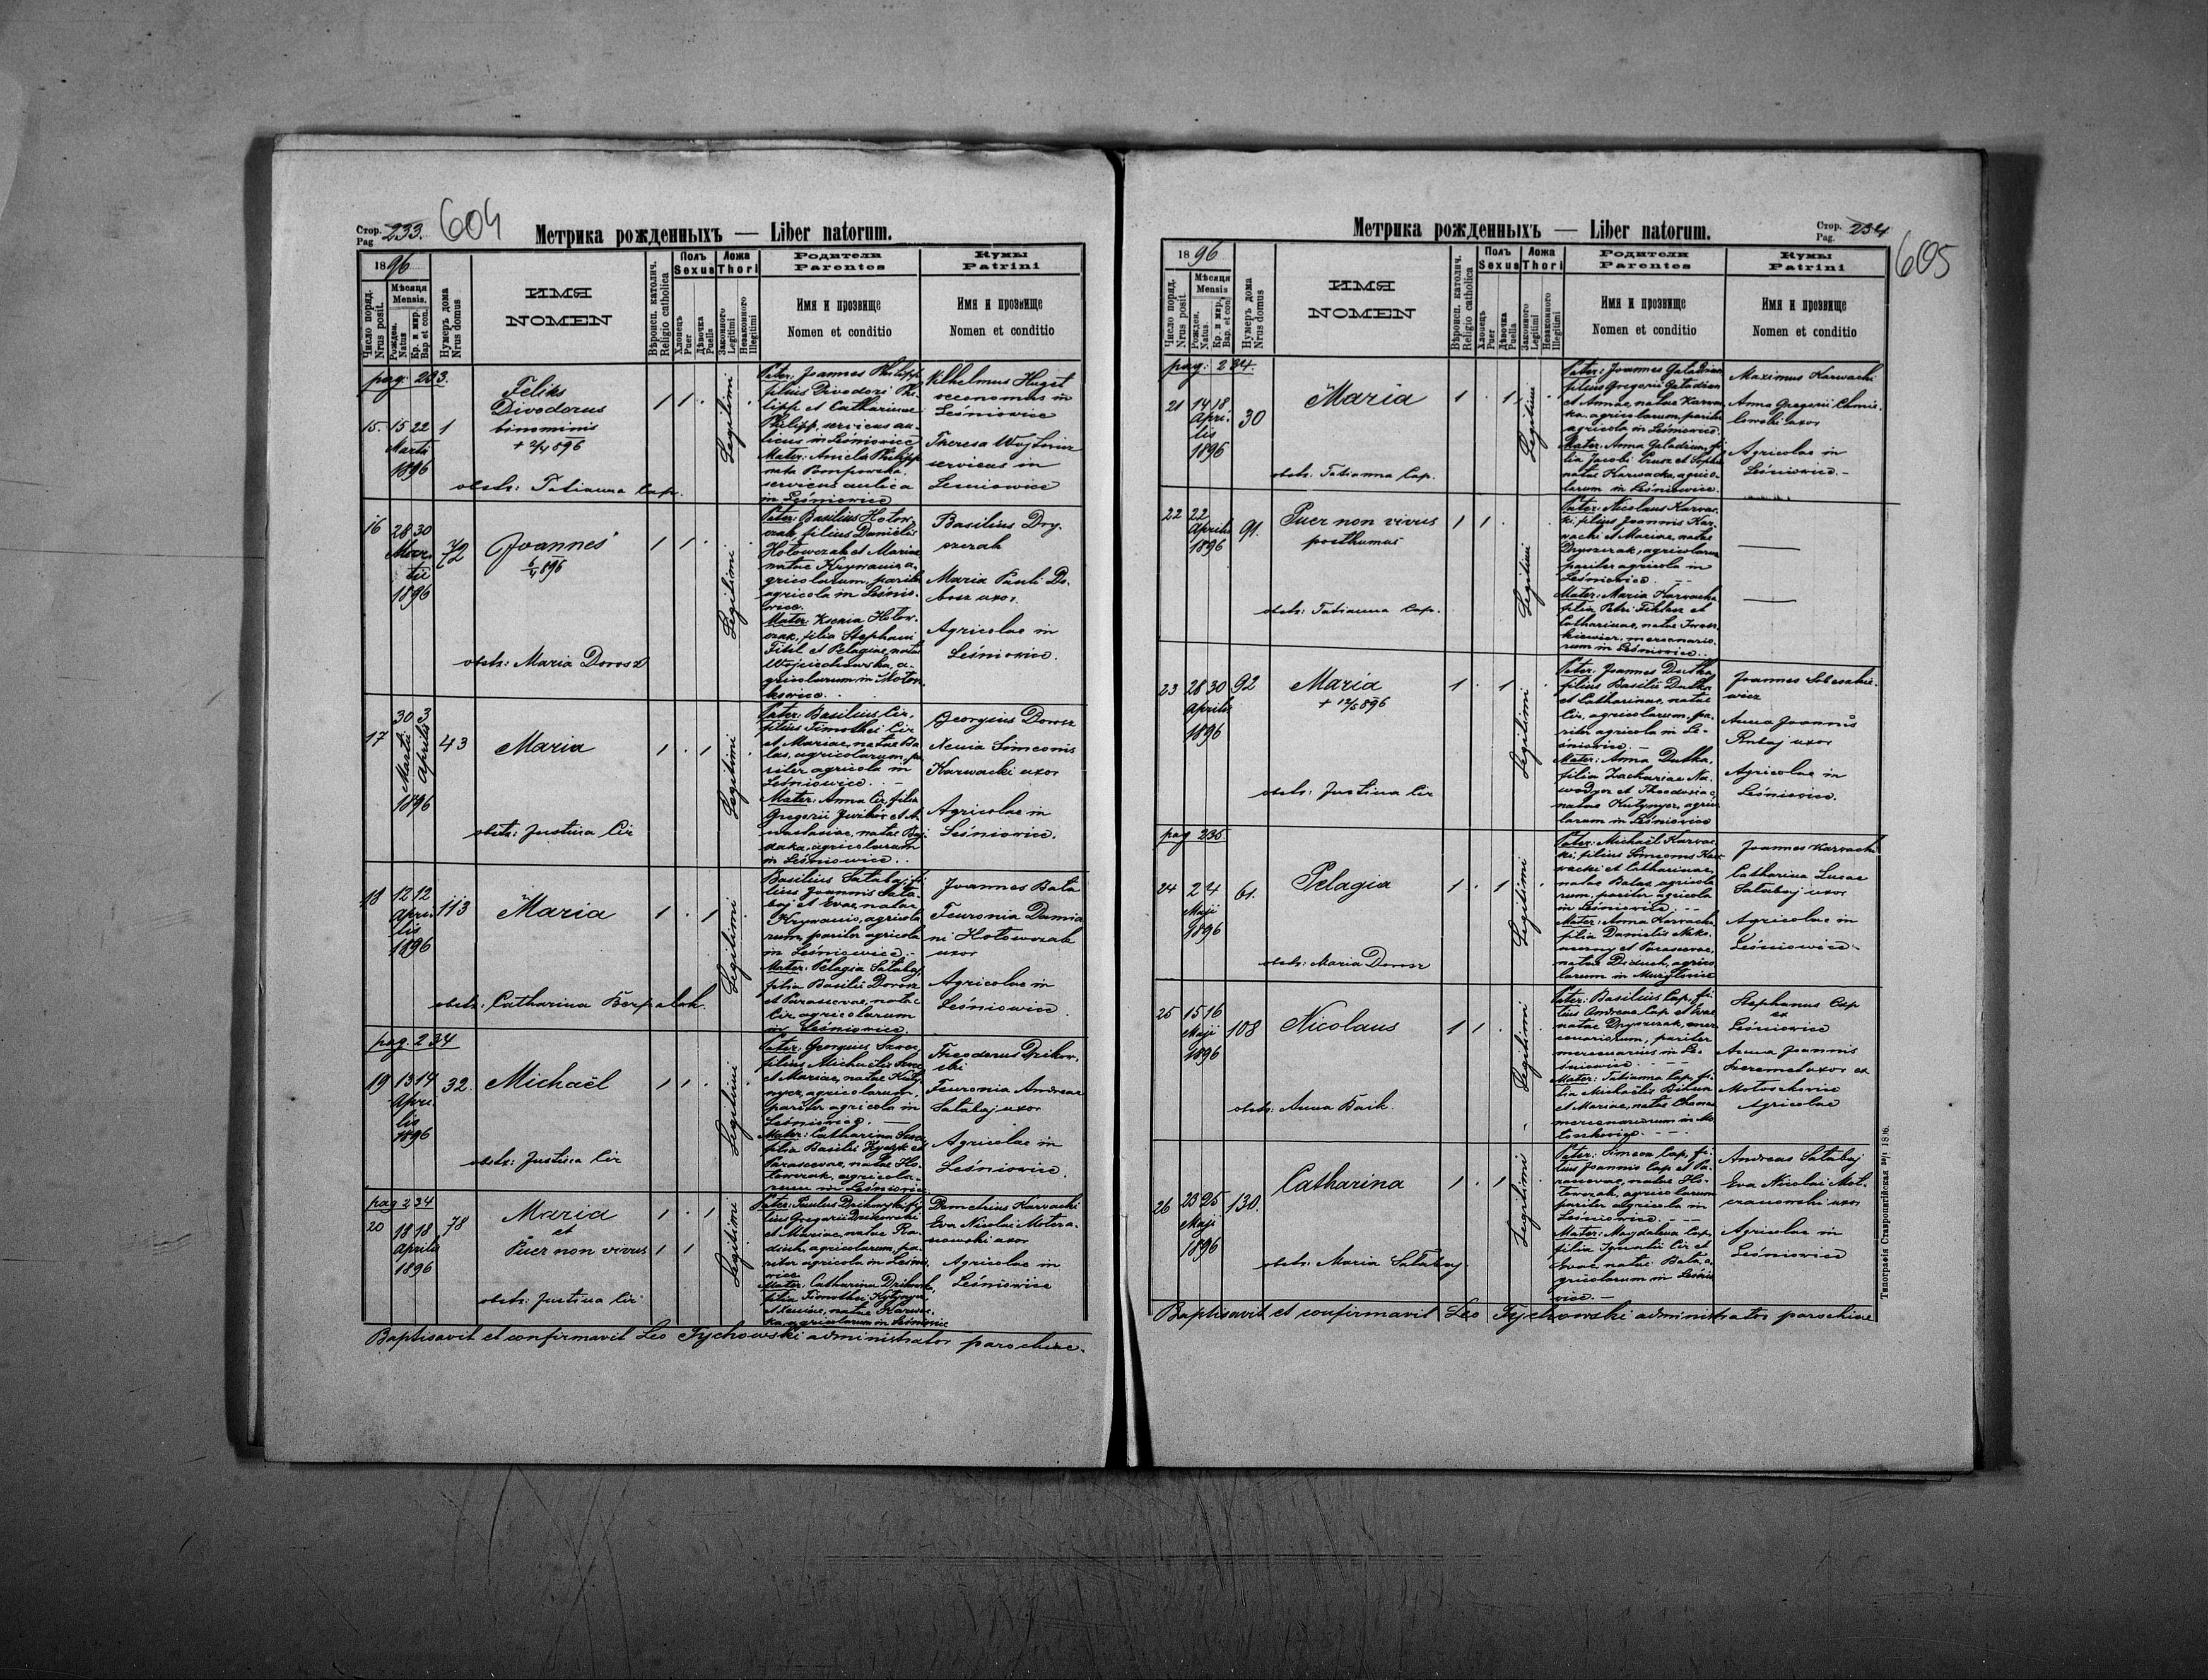 Стор.
Pag
233.
604
Метрика рожденныхъ — Liber natorum.
1896
Число поряд.
Nrus posit.
Мѣсяця
Mensis.
Рожден.
Natus
Кр. и мир.
Bap et con.
Нумеръ дома
Nrus domus
ИМЯ
NOMEN
Вѣроисп. католич.
Religio catholica
Полъ
Sexus
Хлопець
Puer
Дѣвочка
Puella
Ложа
Thori
Законного
Legitimi
Незаконного
Illegitimi
Родители
Parentes
Имя и прозвище
Nomen et conditio
Кумы
Patrini
Имя и прозвище
Nomen et conditio
pag: 233.
15. 15 22 1
Martii
1896
Feliks
Divodorus
binominis
+ 2/4 896
obstr: Tatianna Cap.
1 1 .
Legitimi
Pater: Joannes Philipp
filius Divodori Phi
lipp et Catharinae
Philipp, servicus au-
licus in Leśniowice
Mater: Aniela Philipp
nata Pompowska
servicus aulica
in Leśniowice
Vilhelmus Huget
oeconomus in
Leśniowice
Theresa
servicus in
Leśniowice
16 28 30 72
Mar-
tii
1896
Joannes
obstr: Maria Dorosz
1 1 .
Legitimi
Pater: Basilius Hołow
czak, filius Danielis
Hołowczak et Mariae
natae Krywania a-
gricolarum, pariter
agricola in Leśnio-
wice.
Mater: Ksenia Hołow-
czak, filia Stephani
et Pelagiae, natae
Wojciechowska, a-
gricolarum in
Basilius Dry-
szczak
Maria Pauli Do-
uxor.
Agricolae in
Leśniowice.
17 30 3 43
Martii Aprilis
1896
Maria
obstr: Justina Cir
1 . 1
Legitimi
Pater: Basilius Cir,
filius Timothei Cir
et Mariae, natae Ba
las, agricolarum, pa
riter agricola in
Leśniowice.
Mater: Anna Cir, filia
Gregorii et A-
nastasiae, natae
agricolarum
in Leśniowice.
Georgius Dorosz
Xenia Simeonis
Karwacki uxor
Agricolae in
Leśniowice.
18 12 12 113
Apri-
lis
1896
Maria
obstr: Catharina Berpalok
1 . 1
Legitimi
Basilius Satabaj, fi-
lius Joannis Sata-
baj et Evae, natae
Krywanio, agricola
rum, pariter agricola
in Leśniowice.
Mater: Pelagia Satabaj,
filia Basilii Dorosz
et Parascevae, natae
Cir agricolarum
in Leśniowice.
Joannes Bała
Feuronia Damia
ni Hołowczak
uxor
Agricolae in
Leśniowice.
pag. 234
19 13 14 32.
Apri-
lis
1896
Michaël
obstr: Justina Cir
1 1 .
Legitimi
Pater: Georgius
filius Michaelis
et Mariae, natae Kuty-
nycz, agricolarum,
pariter agricola in
Leśniowice.
Mater: Catharina
filia Basilii et
Parascevae, natae Ho-
łowczak, agricola-
rum in Leśniowice.
Theodorus Dzikow-
ski
Feuronia Andreae
Satabaj uxor
Agricolae in
Leśniowice.
pag 234
20 18 18 78
Aprilis
1896
Maria
et
Puer non vivus
obstr: Justina Cir
1 . 1
1 1
Legitimi
Pater: Paulus Dzikowski, fi
lius Gregorii Dzikowski
et Mariae, natae
agricolarum, pa-
riter agricola in Leśnio-
wice
Mater: Catharina Dzikowska,
filia Timothei
et Xeniae, natae Karwac-
ka agricolarum in Leśniowice
Demetrius Karwacki
Eva Nicolai
uxor
Agricolae in
Leśniowice
Baptisavit et confirmavit Leo Tychowski administrator parochiae.
Метрика рожденныхъ — Liber natorum.
Стор.
Pag.
234
605
1896
Число поряд.
Nrus posit.
Мѣсяця
Mensis
Рожден.
Natus.
Кр. и мир.
Bap. et con
Нумеръ дома
Nrus domus
ИМЯ
NOMEN
Вѣроисп. католич.
Religio catholica
Полъ
Sexus
Хлопець
Puer
Дѣвочка
Puella
Ложа
Thori
Законного
Legitimi
Незаконного
Illegitimi
Родители
Parentes
Имя и прозвище
Nomen et conditio
Кумы
Patrini
Имя и прозвище
Nomen et conditio
pag: 234.
21 14 18 30
Apri-
lis
1896
Maria
obstr: Tatianna Cap.
1 . 1
Legitimi
Pater: Joannes Galadzian
filius Gregorii Galadzian
et Annae, natae Karwac
ka, agricolarum, pariter
agricola in Leśniowice.
Mater: Anna Galadzian, fi
lia Jacobi et Sophiae
natae Karwacka, agrico-
larum in Leśniowice.
Maximus Karwacki
Anna Gregorii Chmie-
lowski uxor
Agricolae in
Leśniowice.
22 22 91.
Aprilis
1896
Puer non vivus
posthumus
obstr: Tatianna Cap.
1 1 .
Legitimi
Pater: Nicolaus Karwac-
ki, filius Joannis Kar-
wacki et Mariae, natae
Dryszczak, agricolarum
pariter agricola in
Leśniowice.
Mater: Maria Karwacka
filia Petri et
Catharinae, natae
mercenario-
rum in Leśniowice.
23 28 30 92
Aprilis
1896
Maria
+ 12/5 896
obstr: Justina Cir
1 . 1
Legitimi
Pater: Joannes Dutka
filius Basilii Dutka
et Catharinae, natae
Cir, agricolarum, pa-
riter agricola in Le-
śniowice.
Mater: Anna Dutka,
filia Zachariae Na-
et Theodosiae,
natae Kutynycz, agrico
larum in Leśniowice
Joannes
wicz
Anna Joannis
uxor
Agricolae in
Leśniowice.
pag 235
24 2 4 61.
Maji
1896
Pelagia
obstr: Maria Dorosz
1 . 1
Legitimi
Pater: Michaël Karwac-
ki, filius Simeonis Kar-
wacki et Catharinae,
natae Balas, agricola
rum, pariter agricola
in Leśniowice.
Mater: Anna Karwacka
filia Danielis
et Parascevae,
natae Diduch, agrico
larum in
Joannes Karwacki
Catharina Lucae
Satabaj uxor
Agricolae in
Leśniowice
25 15 16 108
Maji
1896
Nicolaus
obstr: Anna Baik.
1 1 .
Legitimi
Pater: Basilius Cap, fi-
lius Andreae Cap et Evae
natae Dryszczak, mer-
cenariorum, pariter
mercenarius in Le-
śniowice.
Mater: Tatianna Cap, fi-
lia Michaëlis
et Mariae, natae
mercenariorum in
Stephanus Cap
ex
Leśniowice
Anna Joannis
Szeremeta uxor ex
Agricolae
26 23 25 130.
Maji
1896
Catharina
obstr: Maria Satabaj
1 . 1
Legitimi
Pater: Simeon Cap, fi-
lius Joannis Cap et Pa-
rascevae, natae Ho-
łowczak, agricolarum
pariter agricola in
Leśniowice.
Mater: Magdalena Cap,
filia Ignatii Cir et
Evae, natae Bała, a-
gricolarum in Leśnio
wice.
Andreas Satabaj
Eva Nicolai
uxor
Agricolae in
Leśniowice
Baptisavit et confirmavit Leo Tychowski administrator parochiae
Типографія Ставропигійская 1896.